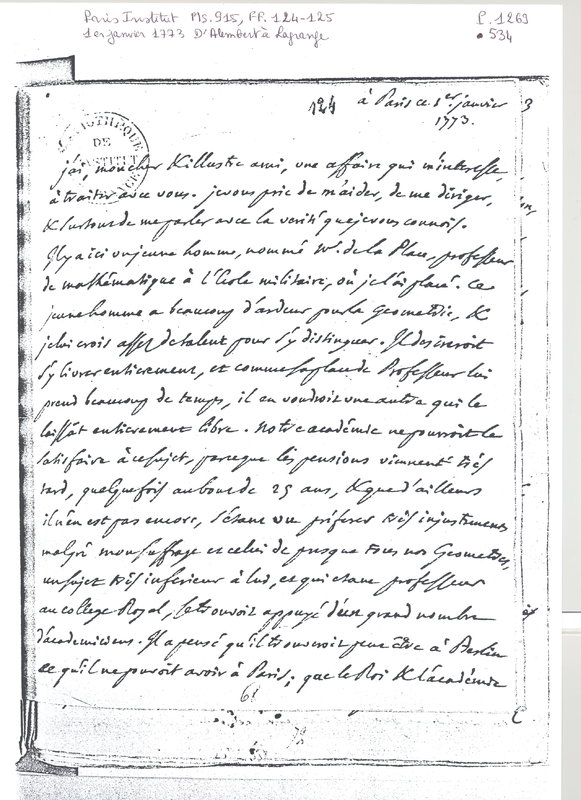 Paris Institut Ms. 915, FF. 124-125
P. 1269
1er janvier 1773 D'Alembert à Lagrange
• 534
124
à Paris ce 1er janvier
1773.
BIBLIOTHEQUE DE L'INSTITUT
j'ai, mon cher & illustre ami, une affaire qui m'interesse
à traiter avec vous. je vous prie de m'aider, de me diriger,
& surtout de me parler avec la verité que je vous connois.
Il y a ici un jeune homme, nommé Mr. de la Place, professeur
de mathématique à l'école militaire, où je l'ai placé. ce
jeune homme a beaucoup d'ardeur pour la Geometrie, &
je lui crois assez de talent pour s'y distinguer. Il desireroit
s'y livrer entierement, et comme sa place de Professeur lui
prend beaucoup de temps, il en voudroit une autre qui le
laissât entierement libre. Notre académie ne pourroit le
satisfaire à ce sujet, parce que les pensions viennent très
tard, quelquefois au bout de 25 ans, & que d'ailleurs
il n'en est pas encore, s'étant vu préferer très injustement
malgré mon suffrage et celui de presque tous nos Geometres,
un sujet très inferieur à lui, et qui etant professeur
au college Royal, se trouvoit appuyé d'un grand nombre
d'academiciens. Il a pensé qu'il trouveroit peut être à Berlin
ce qu'il ne pouvoit avoir à Paris; que le Roi & l'académie
61
72